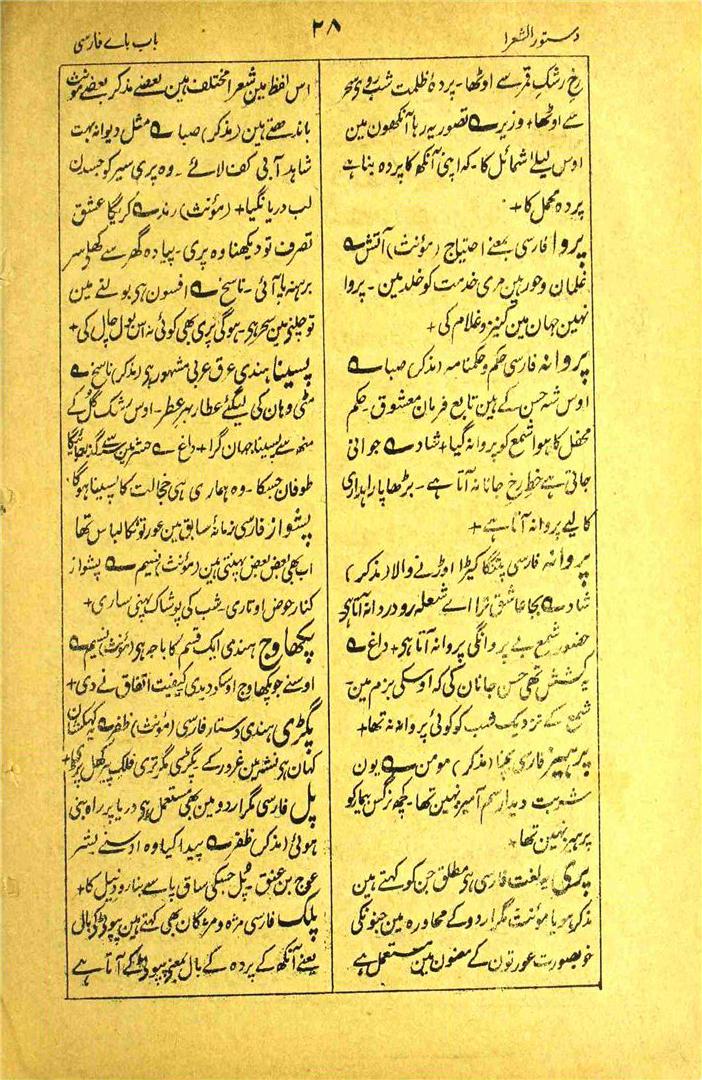 دستور الشعرا
۲۸
باب باے فارسی
رخ رشکِ قمر سے اوٹھا۔ پردۂ ظلمت شب روی سحر
سے اوٹھا + وزیر ے تصور یہ رہا آنکھون مین
اوس لیلے اشمائل کا۔ کہ اپنی آنکھ کا پردہ بنا ہے
پردہ محمل کا +
پروا فارسی بمعنے احتیاج (مؤنث) آتش ے
غلمان و حور ہین مری خدمت کو خلد مین۔ پروا
نہین جہان مین کنیز و غلام کی +
پروانہ فارسی حکم و حکمنامہ (مذکر) صبا ے
اوس شہ حسن کے ہین تابع فرمان معشوق۔ حکم
محفل کا ہوا شمع کو پروانہ گیا + شاد ے جوانی
جاتی ہے خط رخ جانانہ آتا ہے۔ بڑھاپا راہداری
کا لیے پروانہ آتا ہے +
پروانہ فارسی پتنگا کیڑا اوڑنے والا (مذکر)
شاد ے بجا عاشق ترا اے شعلہ رو دردانہ آتا ہی
حضور شمع بے پروانگی پروانہ آتا ہی + داغ ے
یہ کشش تھی حسن جانان کی کہ اوسکی بزم مین۔
شمع کے نزدیک شب کو کوئی پروانہ نہ تھا +
پرہیز فارسی بچنا (مذکر) مومن ے یون
شربت دیدار سم آمیز نہین تھا۔ کچھ نرگس بیمار کو
پرہیز نہین تھا +
پری یہ لغت فارسی ہی مطلق جن کو کہتے ہین
مذکر ہو یا مؤنث مگر اردو کے محاورہ مین جنونکی
خوبصورت عورتون کے معنون مین مستعمل ہے
اس لفظ مین شعرا مختلف ہین بعضے مذکر بعضے مؤنث
باندھتے ہین (مذکر) صبا ے مثل دیوانہ بہت
شاہد آبی کف لائے۔ وہ پری سیر کو جسدن
لب دریا نگیا + (مؤنث) رند ے کریگا عشق
تصرف تو دیکھنا وہ پری۔ پیادہ گھر سے کھلے سر
برہنہ پا آئی۔ ناسخ ے افسون ہی بولنے مین
تو چلنے مین سحر ہی۔ ہوگی پری بھی کوئی نہ اس بول چال کی +
پسینا ہندی عرق عربی مشہور ہی (مذکر) ناسخ ے
مٹی وہان کی لیگئے عطار بہر عطر۔ اوس رشک گل کے
منھ سے پسینا جہان گرا + داغ ے حشر مین
طوفان جسکا۔ وہ ہماری ہی خجالت کا پسینا ہوگا
پشواز فارسی زمانۂ سابق مین عورتونکا لباس تھا
اب بھی بعض بعض پہنتی ہین (مؤنث) نسیم ے پشواز
کنار حوض اوتاری۔ شب کی پوشاک پہنی ساری +
پکھاوج ہندی ایک قسم کا باجہ ہی (مؤنث) نسیم ے
اوسنے جو پکھاوج اوسکو دیدی کیفیت اتفاق نے دی +
پگڑی ہندی دستار فارسی (مؤنث) ظفر ے یہ کہکشان
کہان ہی نشہ مین غرور کے۔ پگڑی مگر تری فلک پر کھل پڑی +
پل فارسی مگر اردو مین بھی مستعمل ہی دریا پر راہ بنی
ہوئی (مذکر) ظفر ے پیدا کیا وہ اوسنے بشر
عوج بن عنق۔ پل جسکی ساق پا سے بنا رود نیل کا +
پلک فارسی مژہ و مژگان بھی کہتے ہین پپوٹے کی بال
یعنے آنکھ کے پردہ کے بال بمعنے پپوٹے کے آتا ہے